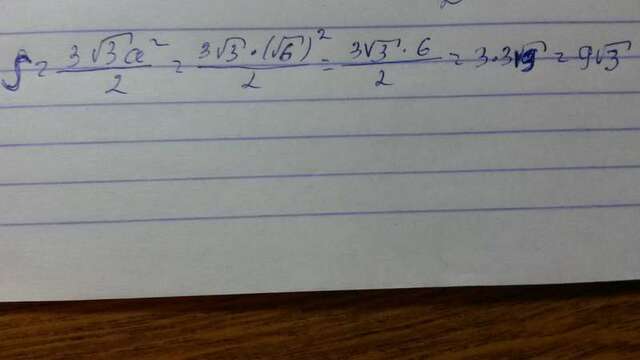 S = 3√3a²/2 = 3√3·(√6)²/2 = 3√3·6/2 = 3·3√3 = 9√3